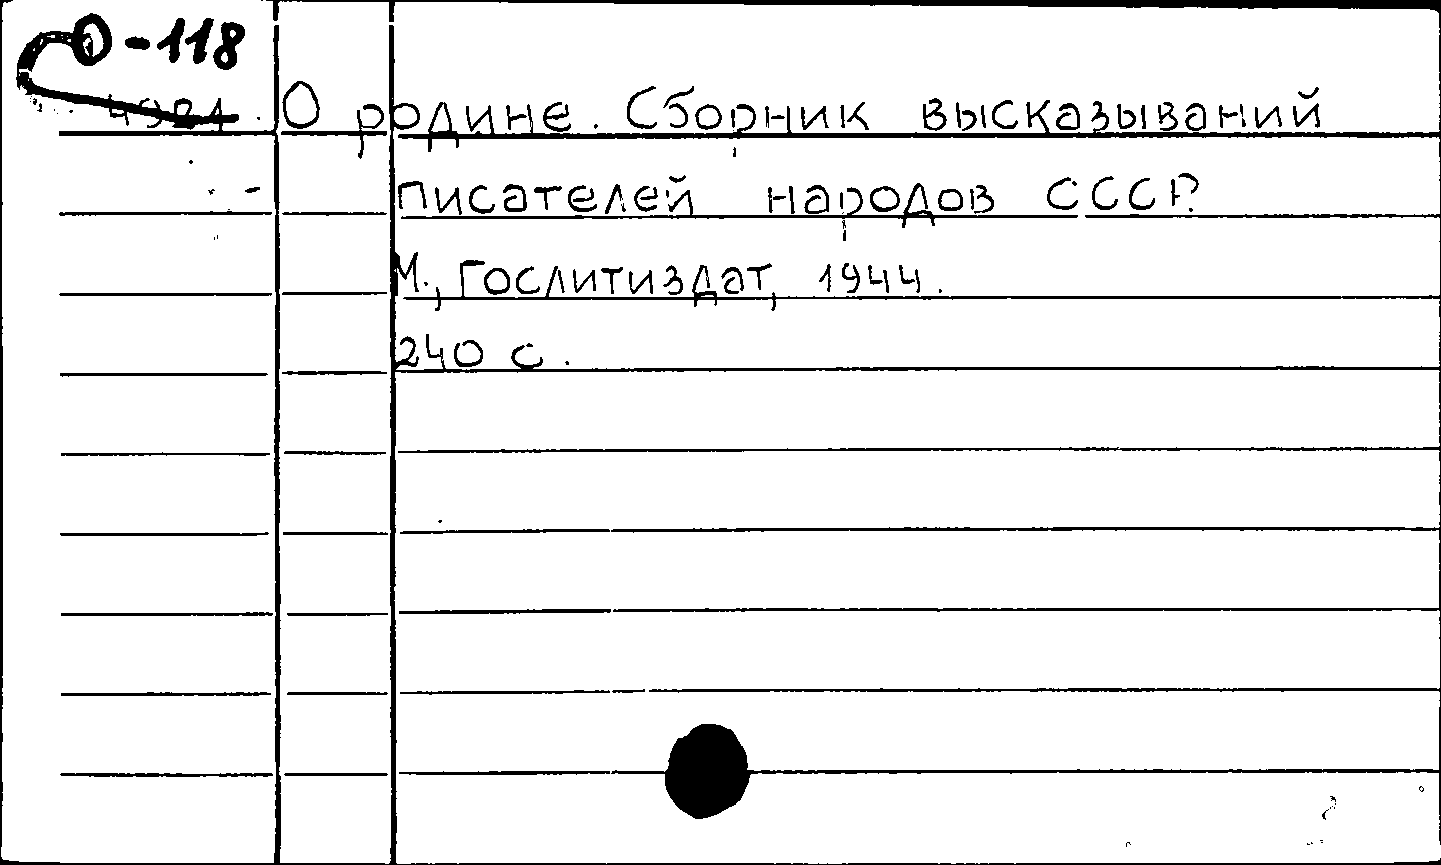 О-118
О родине. Сборник высказываний
писателей народов СССР.
М., Гослитиздат, 1944.
240 с.